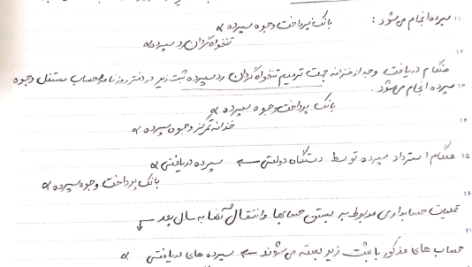 سپرده انجام می‌شود: بانک پرداخت وجوه سپرده ×
تنخواه گردان رد سپرده ×
هنگام دریافت وجه از خزانه جهت ترمیم تنخواه گردان رد سپرده ثبت زیر در دفتر روزنامه حساب مستقل وجوه
سپرده انجام می‌شود.
بانک پرداخت وجوه سپرده ×
خزانه تمرکز وجوه سپرده ×
هنگام استرداد سپرده توسط دستگاه دولتی ← سپرده دریافتی ×
بانک پرداخت وجوه سپرده ×
عملیات حسابداری مربوط به بستن حسابها و انتقال آنها به سال بعد ↓
حساب های مذکور با ثبت زیر بسته می‌شوند ← سپرده های دریافتی ×